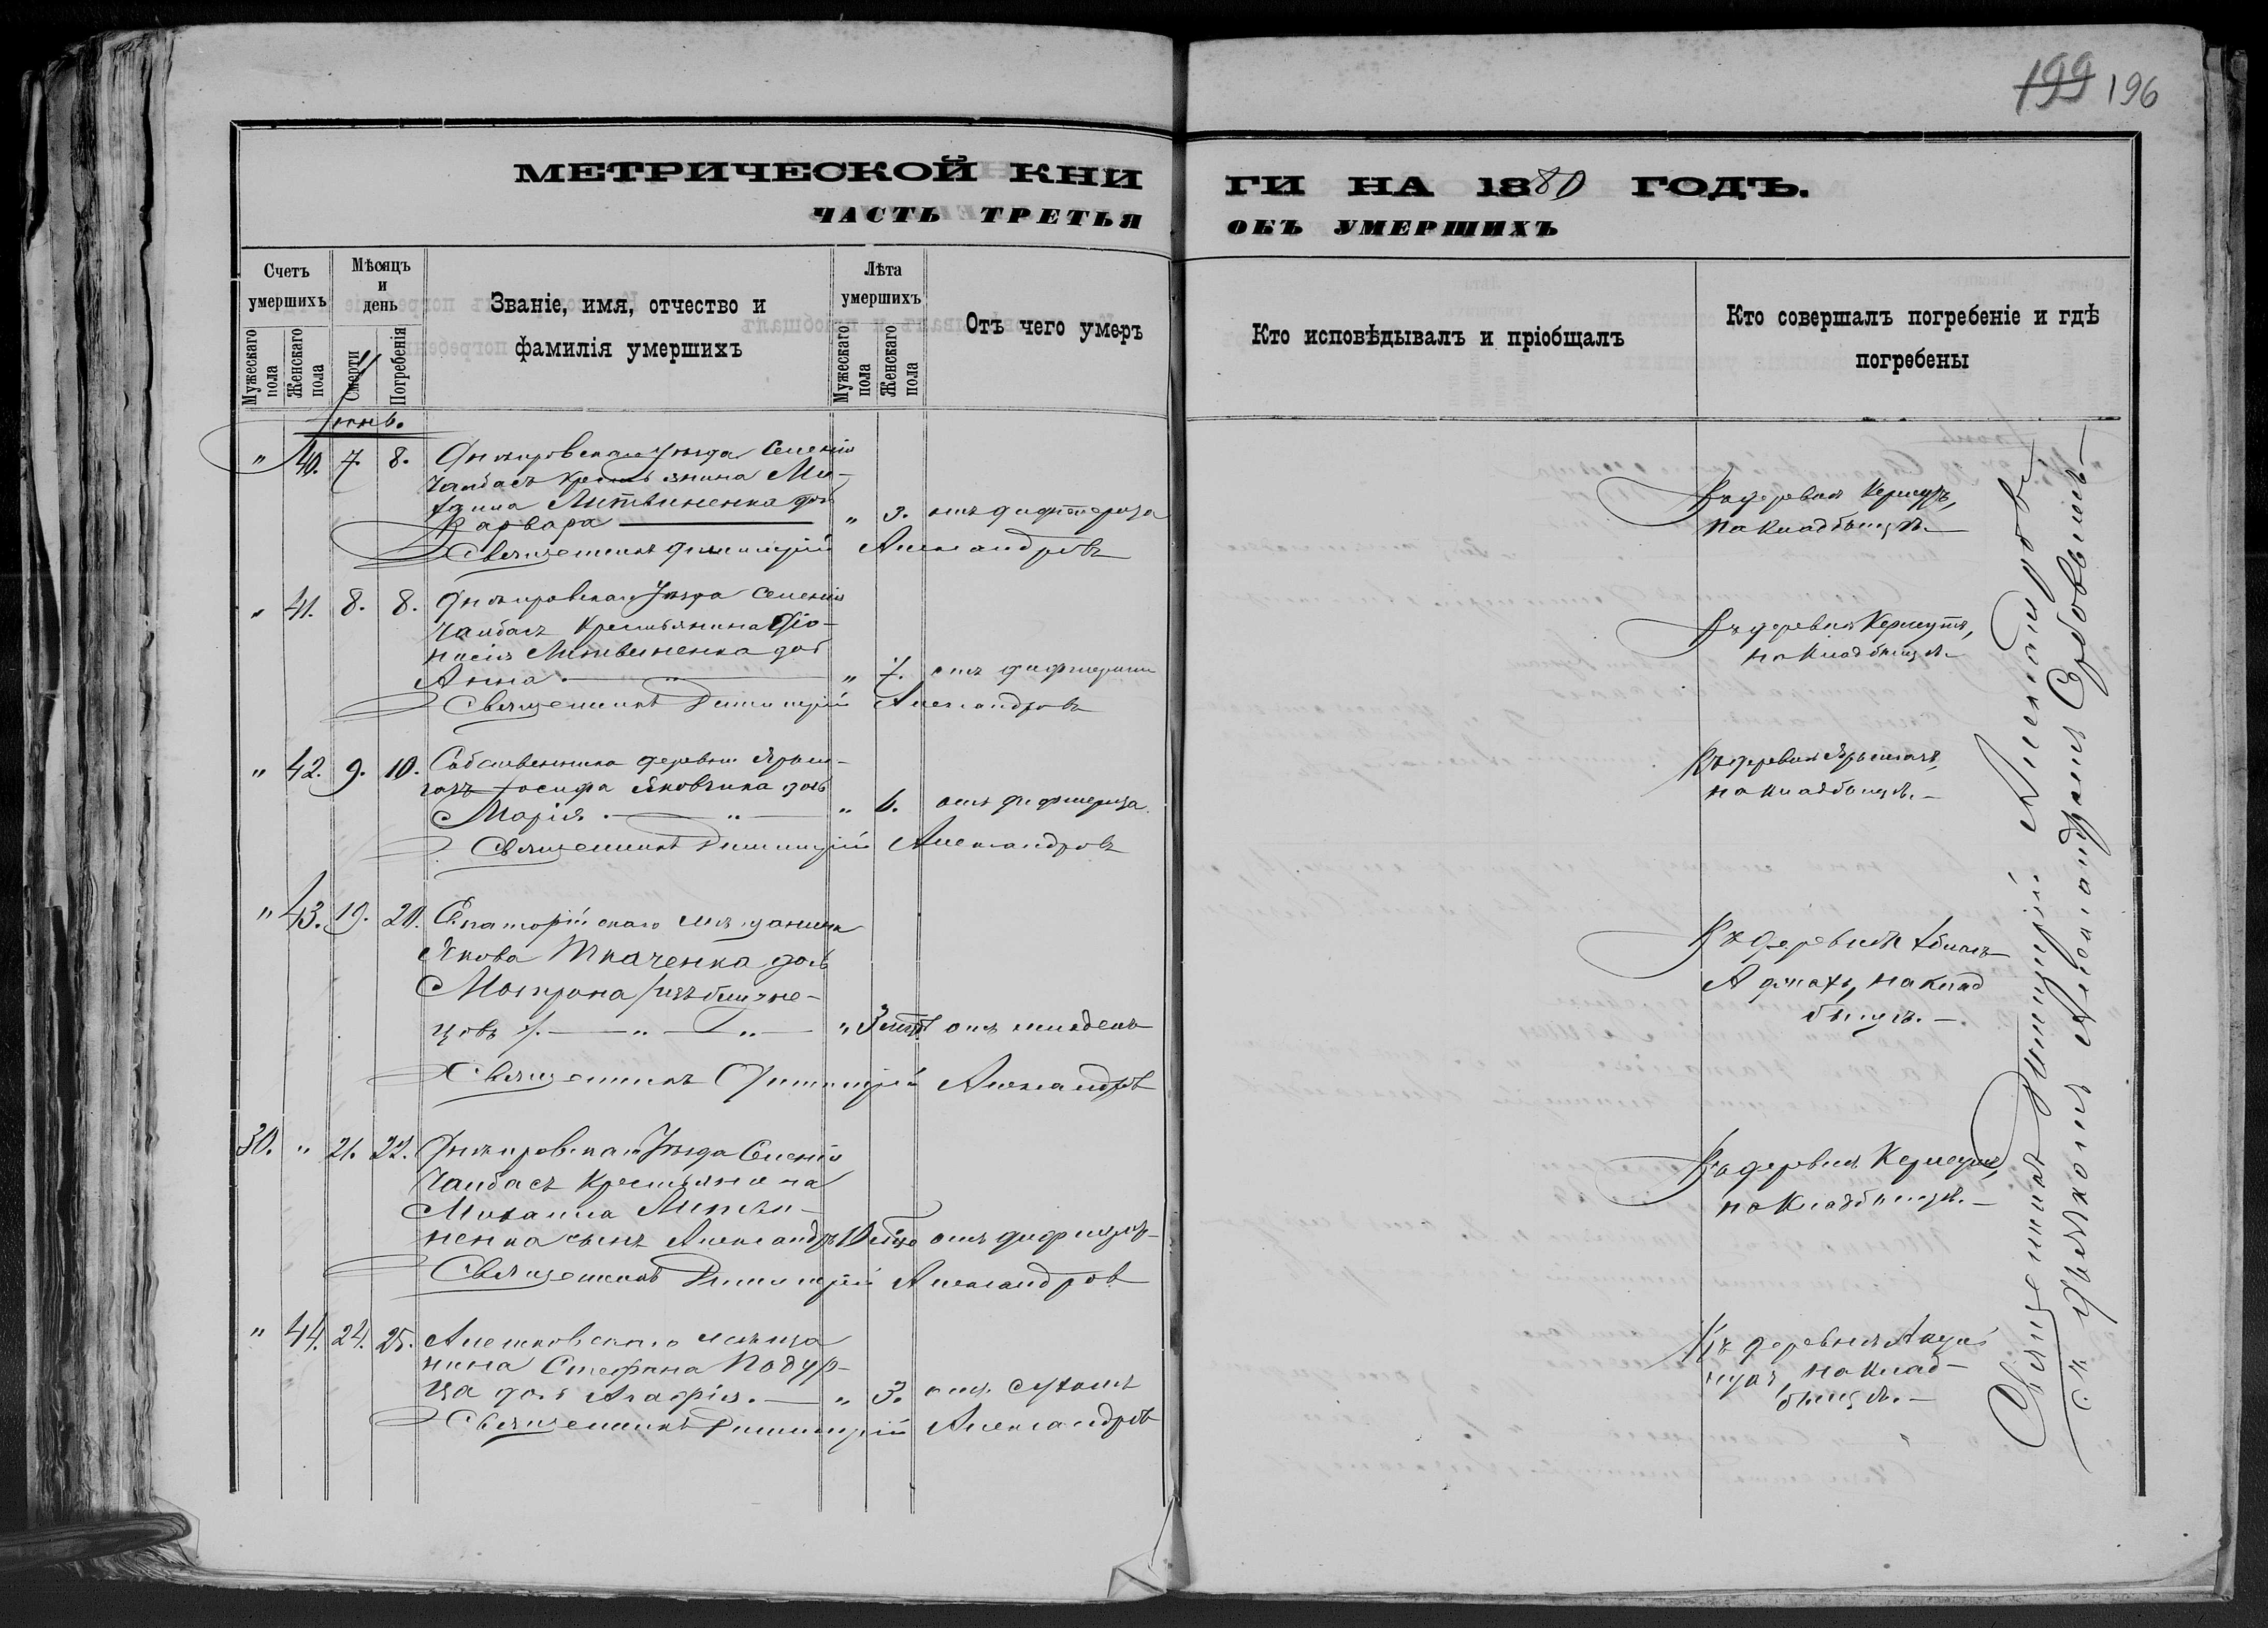 199 196
МЕТРИЧЕСКОЙ КНИ
ГИ НА 1880 ГОДЪ.
ЧАСТЬ ТРЕТЬЯ
ОБЪ УМЕРШИХЪ
Счетъ умершихъ
Мужескаго пола
Женскаго пола
Мѣсяцъ и день
Смерти
Погребенія
Званіе, имя, отчество и
фамилія умершихъ
Лѣта умершихъ
Мужескаго пола
Женскаго пола
Отъ чего умеръ
Кто исповѣдывалъ и пріобщалъ
Кто совершалъ погребеніе и гдѣ
погребены
" 40. 7. 8. Днѣпровскаго Уѣзда Селенія
Чалбасъ Крестьянина Ми-
хаила Литвиненка дочь
Варвара — " 3. отъ дифтерита
Священникъ Димитрій Александровъ
Въ деревнѣ
на кладбищѣ. —
" 41. 8. 8. Днѣпровскаго Уѣзда Селенія
Чалбасъ Крестьянина Діо-
нисія Литвиненка дочь
Анна. — " — " 7. отъ дифтерита
Священникъ Димитрій Александровъ
Въ деревнѣ
на кладбищѣ. —
" 42. 9. 10. Собственника деревни
Іосифа Яковчика дочь
Марія. — " — " 6. отъ дифтерита.
Священникъ Димитрій Александровъ
Въ деревнѣ
на кладбищѣ. —
" 43. 19. 20. Евпаторійскаго мѣщанина
Якова Ткаченка дочь
Матрона /изъ близне-
цовъ/. — " — " — " 3 отъ младенч
Священникъ Димитрій Александровъ
Въ деревнѣ
на клад
бищѣ. —
30. " 21. 22. Днѣпровскаго Уѣзда Селенія
Чалбасъ Крестьянина
Михаила Литви-
ненка сынъ Александръ отъ дифтерит
Священникъ Димитрій Александровъ
Въ деревнѣ
на кладбищѣ. —
" 44. 24. 25. Алешковскаго мѣща
нина Стефана
дочь Агафія. — " 3. отъ
Священникъ Димитрій Александровъ
Въ деревнѣ
на клад-
бищѣ. —
Священникъ Димитрій Александровъ
съ Дьякономъ Александромъ